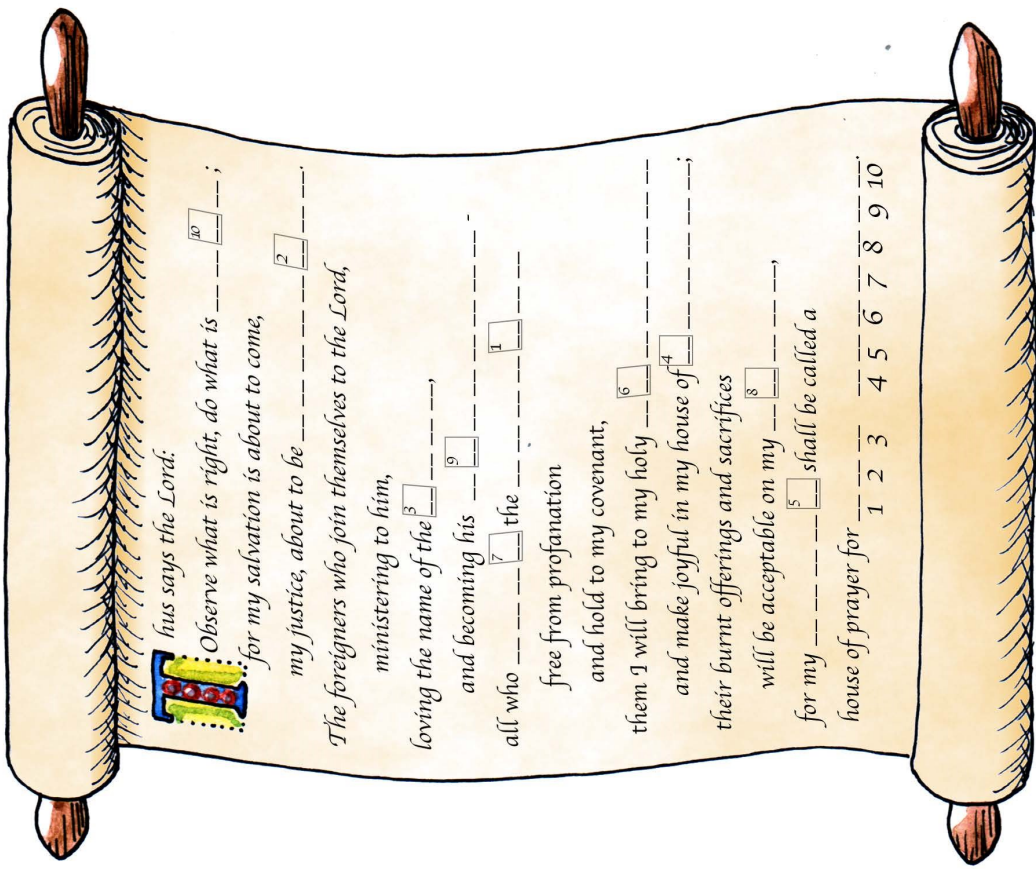 Thus says the Lord:
Observe what is right, do what is _ _ _ 10 _ _ ;
for my salvation is about to come,
my justice, about to be _ _ _ _ _ _ _ 2 _ _ _ .
The foreigners who join themselves to the Lord,
ministering to him,
loving the name of the 3 _ _ _ _ ,
and becoming his _ _ 9 _ _ _ _ _ _ _ -
all who _ _ _ _ 7 the _ _ _ _ _ 1 _ _ _
free from profanation
and hold to my covenant,
them I will bring to my holy _ 6 _ _ _ _ _ _
and make joyful in my house of 4 _ _ _ _ _ ;
their burnt offerings and sacrifices
will be acceptable on my _ 8 _ _ _ _ ,
for my _ _ _ _ 5 shall be called a
house of prayer for _ _ _ _ _ _ _ _ _ _ .
1 2 3 4 5 6 7 8 9 10